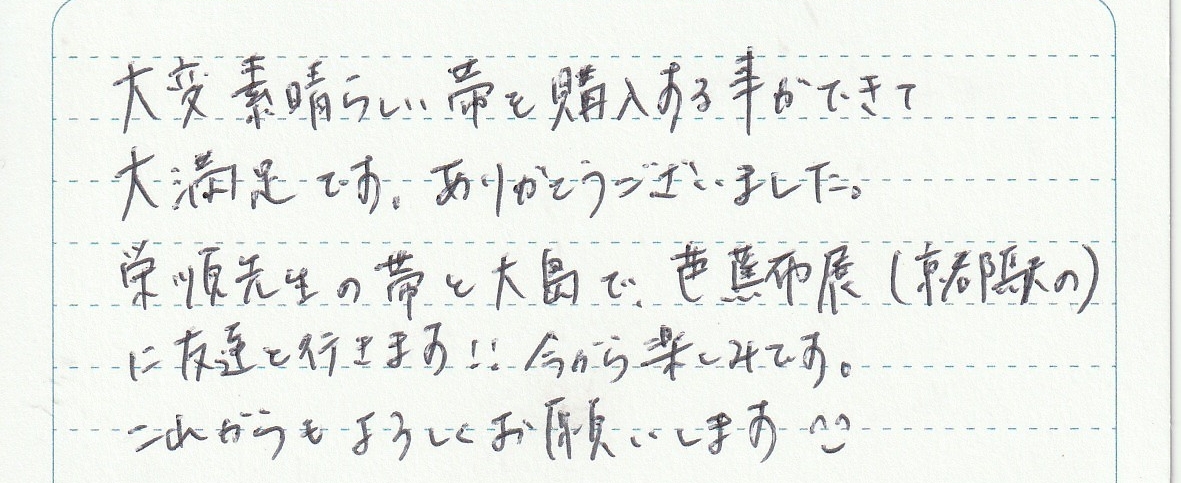 大変素晴らしい帯を購入する事ができて
大満足です。ありがとうございました。
栄順先生の帯と大島で、芭蕉布展(京都駅の)
に友達と行きます!! 今から楽しみです。
これからもよろしくお願いします